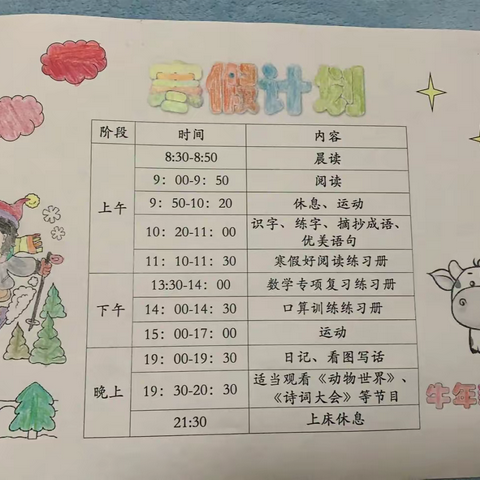 寒假计划
阶段 时间 内容
上午 8:30-8:50 晨读
9：00-9：50 阅读
9：50-10：20 休息、运动
10：20-11：00 识字、练字、摘抄成语、
优美语句
11：10-11：30 寒假好阅读练习册
下午 13:30-14：00 数学专项复习练习册
14：00-14：30 口算训练练习册
15：00-17：00 运动
晚上 19：00-19：30 日记、看图写话
19：30-20：30 适当观看《动物世界》、
《诗词大会》等节目
21:30 上床休息
牛年